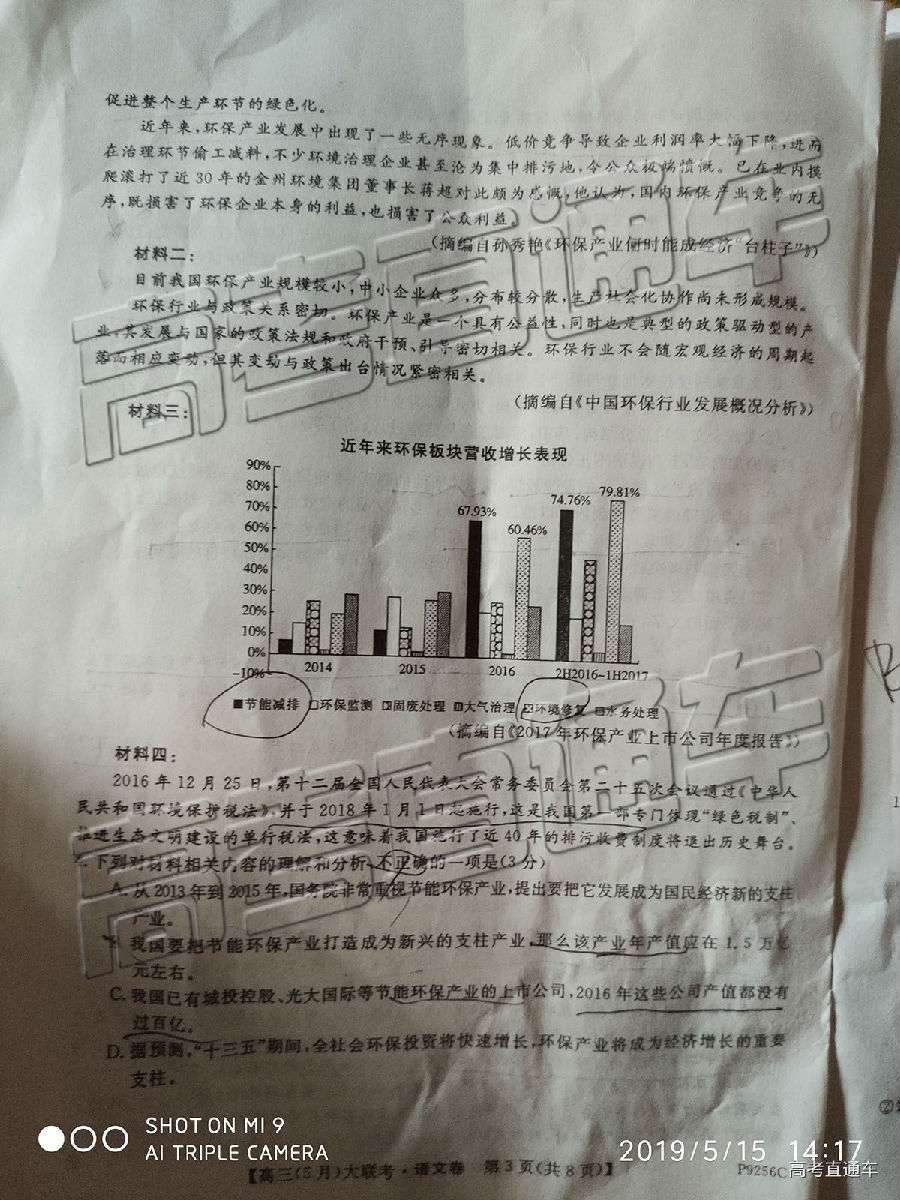 促进整个生产环节的绿色化。
近年来,环保产业发展中出现了一些无序现象。低价竞争导致企业利润率大幅下降,进而
在治理环节偷工减料,不少环境治理企业甚至沦为集中排污地,令公众极端愤慨。已在业内摸
爬滚打了近30年的金州环境集团董事长蒋超对此颇为感慨,他认为,国内环保产业竞争的无
序,既损害了环保企业本身的利益,也损害了公众利益。
(摘编自孙秀艳《环保产业何时能成经济“台柱子”》)
材料二:
目前我国环保产业规模较小,中小企业众多,分布较分散,生产社会化协作尚未形成规模。
环保行业与政策关系密切。环保产业是一个具有公益性,同时也是典型的政策驱动型的产
业,其发展与国家的政策法规和政府干预、引导密切相关。环保行业不会随宏观经济的周期起
落而相应变动,但其变动与政策出台情况紧密相关。
(摘编自《中国环保行业发展概况分析》)
材料三:
近年来环保板块营收增长表现
90%
80%
70%
60%
50%
40%
30%
20%
10%
0%
-10%
67.93%
60.46%
74.76%
79.81%
2014
2015
2016
2H2016~1H2017
节能减排 环保监测 固废处理 大气治理 环境修复 水务处理
(摘编自《2017年环保产业上市公司年度报告》)
材料四:
2016年12月25日,第十二届全国人民代表大会常务委员会第二十五次会议通过《中华人
民共和国环境保护税法》,并于2018年1月1日起施行,这是我国第一部专门体现“绿色税制”、
推进生态文明建设的单行税法,这意味着我国施行了近40年的排污收费制度将退出历史舞台。
下列对材料相关内容的理解和分析,不正确的一项是(3分)
A. 从2013年到2015年,国务院非常重视节能环保产业,提出要把它发展成为国民经济新的支柱
产业。
我国要把节能环保产业打造成为新兴的支柱产业,那么该产业年产值应在1.5万亿
元左右。
C. 我国已有城投控股、光大国际等节能环保产业的上市公司,2016年这些公司产值都没有
过百亿。
D. 据预测,“十三五”期间,全社会环保投资将快速增长,环保产业将成为经济增长的重要
支柱。
【高三(5月)大联考·语文卷 第3页(共8页)】 P9256C
SHOT ON MI 9
AI TRIPLE CAMERA
2019/5/15 14:17
高考直通车
高考直通车
高考直通车